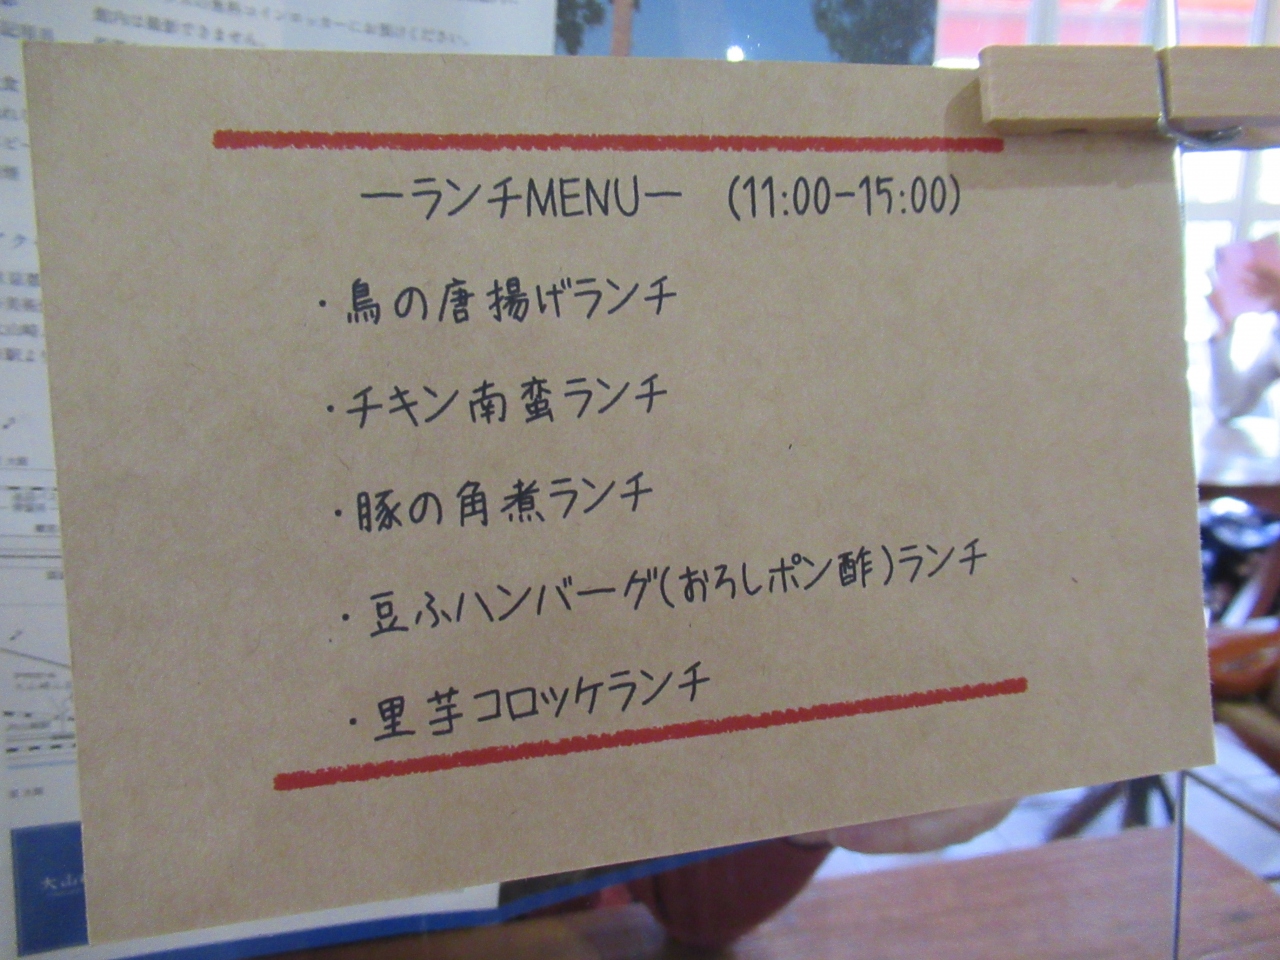 館内は撮影できません。
ーランチMENUー (11:00-15:00)
・鳥の唐揚げランチ
・チキン南蛮ランチ
・豚の角煮ランチ
・豆ふハンバーグ(おろしポン酢)ランチ
・里芋コロッケランチ